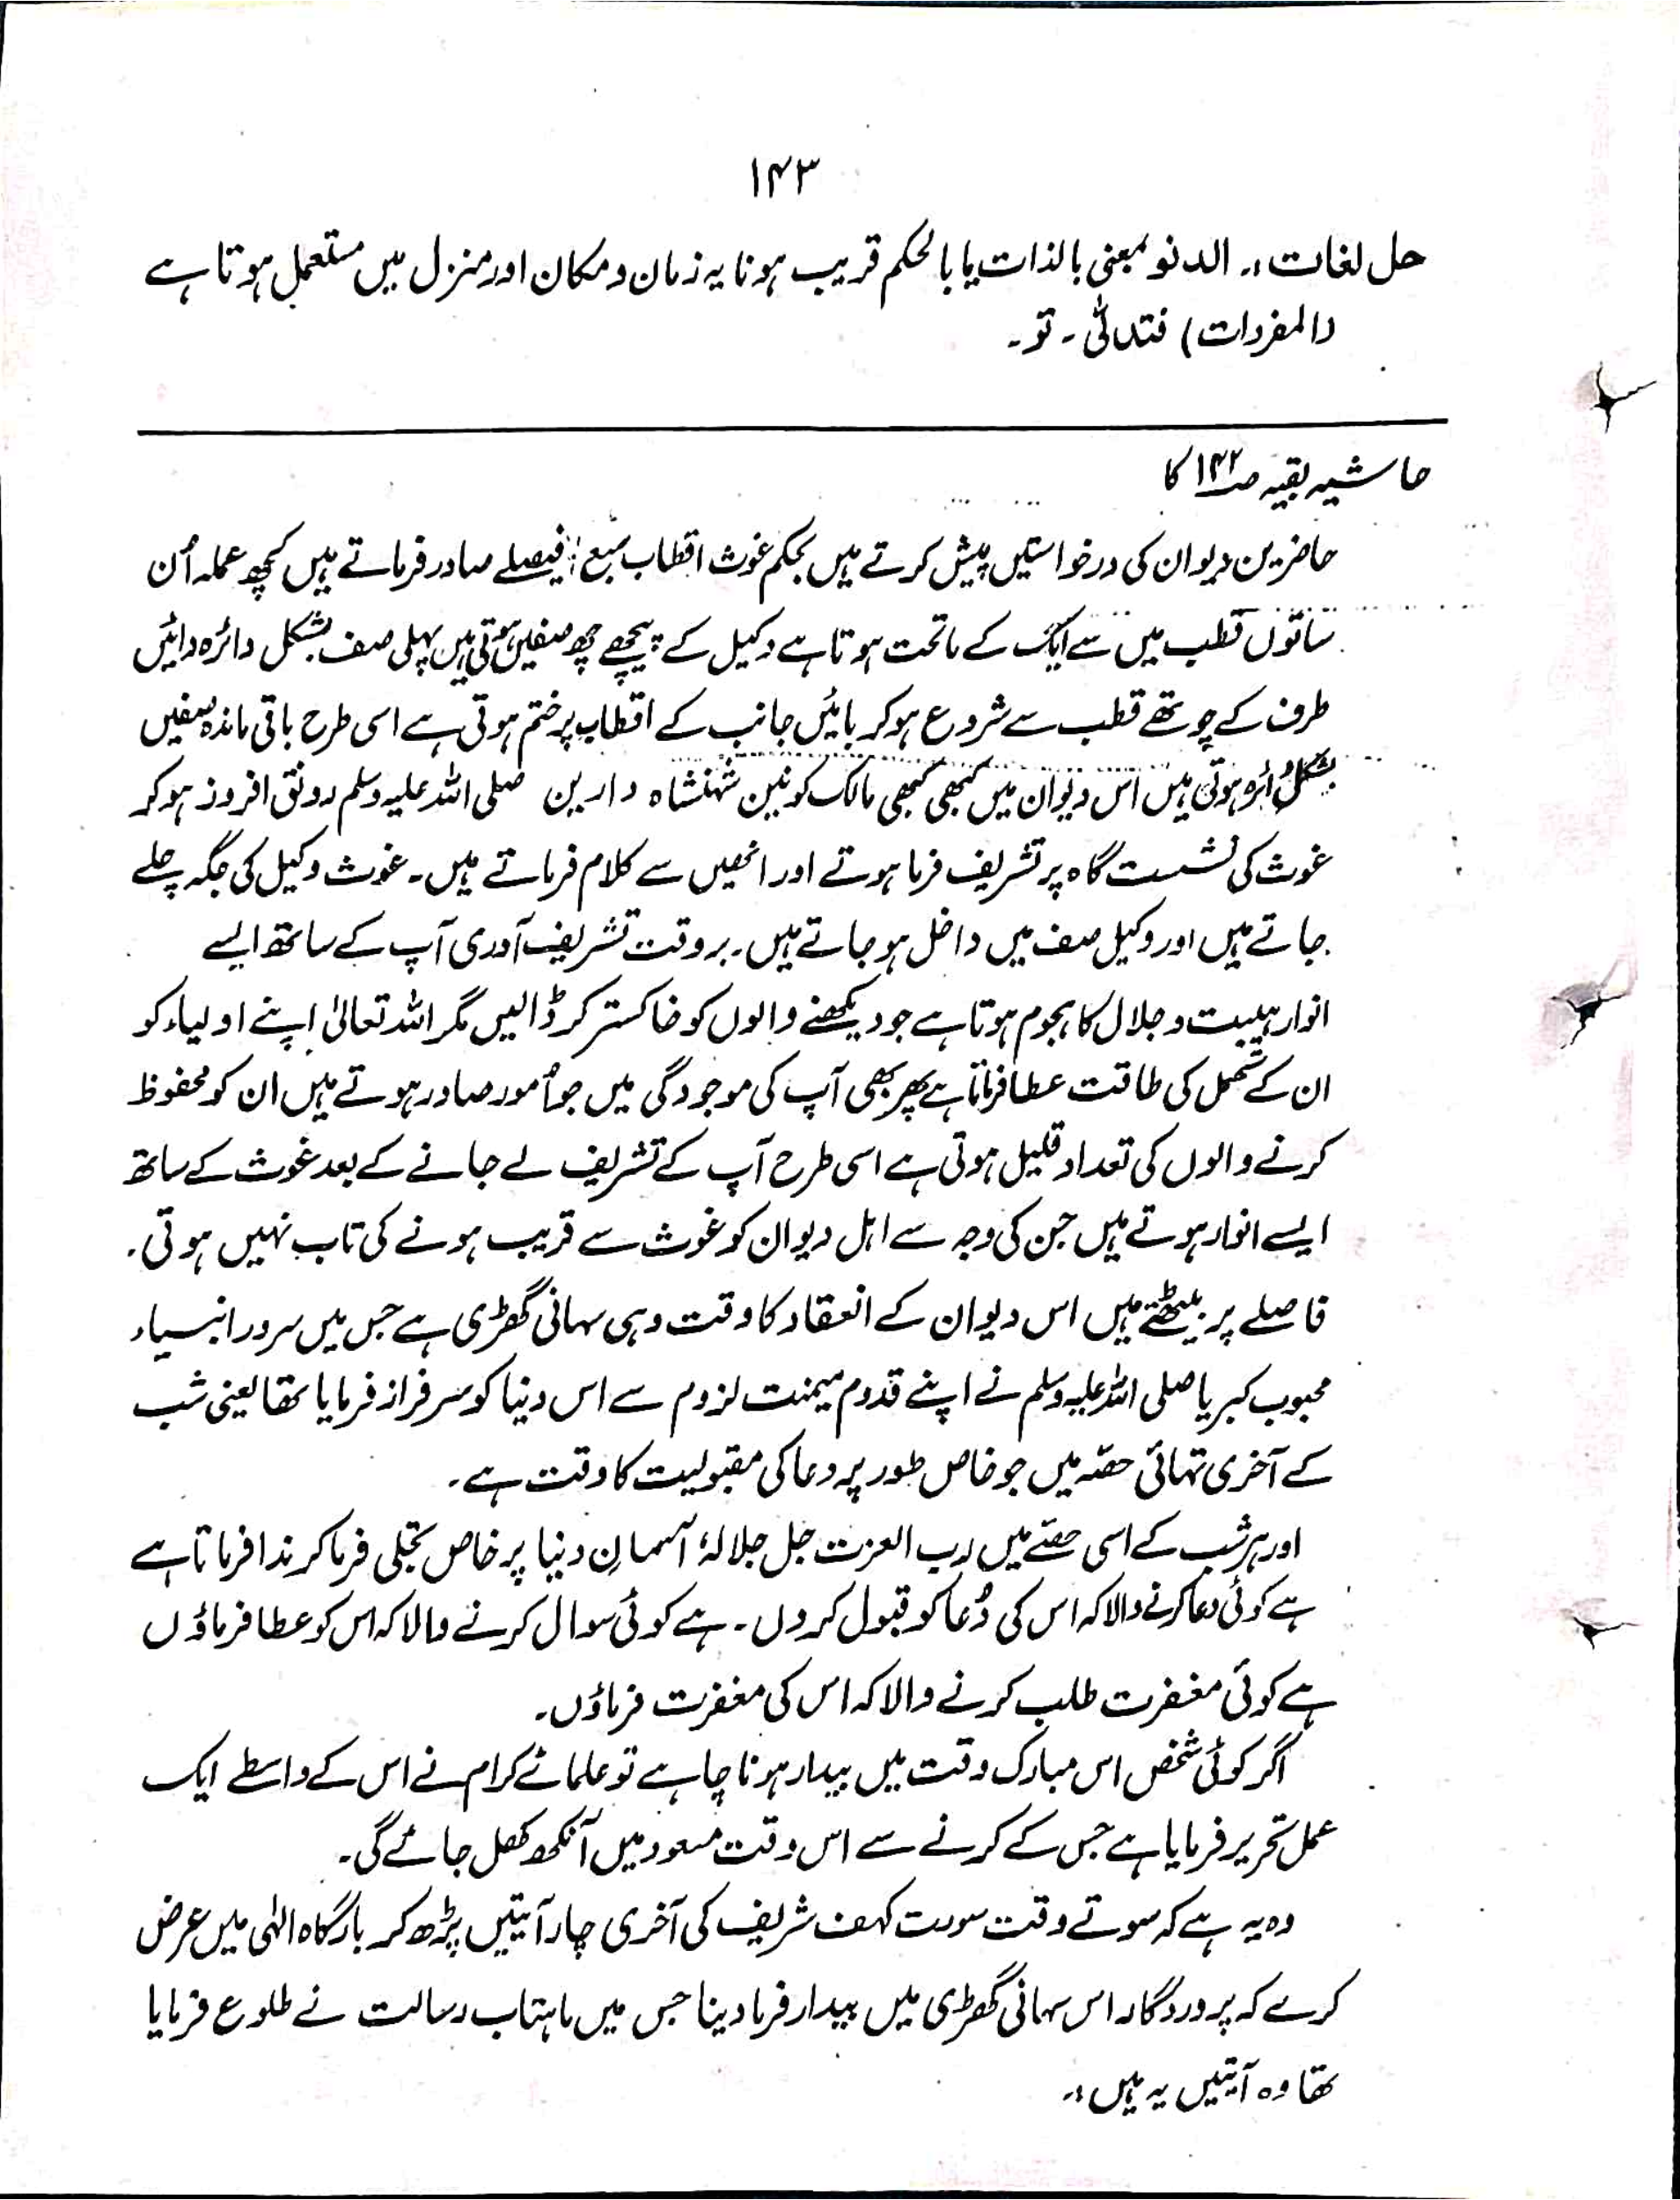 ۱۴۳
حل لغات :۔ الدنو بمعنی بالذات یا بالحکم قریب ہونا یہ زمان و مکان اور منزل میں مستعمل ہوتا ہے
(المفردات) فتدلی ۔ تو ۔
حاشیہ بقیہ صـ ۱۴۲ کا
حاضرین دیوان کی درخواستیں پیش کرتے ہیں بحکم غوث اقطاب سبع فیصلے صادر فرماتے ہیں کچھ عملہ اُن
ساتوں قطب میں سے ایک کے ماتحت ہوتا ہے وکیل کے پیچھے چھ صفیں ہوتی ہیں پہلی صف بشکل دائرہ دائیں
طرف کے چوتھے قطب سے شروع ہو کر بائیں جانب کے اقطاب پر ختم ہوتی ہے اسی طرح باقی ماندہ صفیں
بشکل دائرہ ہوتی ہیں اس دیوان میں کبھی کبھی مالک کونین شہنشاہ دارین صلی اللہ علیہ وسلم رونق افروز ہو کر
غوث کی نشست گاہ پر تشریف فرما ہوتے اور انھیں سے کلام فرماتے ہیں ۔ غوث وکیل کی جگہ چلے
جاتے ہیں اور وکیل صف میں داخل ہو جاتے ہیں ۔ بروقت تشریف آوری آپ کے ساتھ ایسے
انوار ہیبت و جلال کا ہجوم ہوتا ہے جو دیکھنے والوں کو خاکستر کر ڈالیں مگر اللہ تعالیٰ اپنے اولیاء کو
ان کے تحمل کی طاقت عطا فرماتا ہے پھر بھی آپ کی موجودگی میں جو اُمور صادر ہوتے ہیں ان کو محفوظ
کرنے والوں کی تعداد قلیل ہوتی ہے اسی طرح آپ کے تشریف لے جانے کے بعد غوث کے ساتھ
ایسے انوار ہوتے ہیں جن کی وجہ سے اہل دیوان کو غوث سے قریب ہونے کی تاب نہیں ہوتی ۔
فاصلے پر بیٹھتے ہیں اس دیوان کے انعقاد کا وقت وہی سہانی گھڑی ہے جس میں سرور انبیاء
محبوب کبریا صلی اللہ علیہ وسلم نے اپنے قدوم میمنت لزوم سے اس دنیا کو سرفراز فرمایا تھا یعنی شب
کے آخری تہائی حصّہ میں جو خاص طور پر دعا کی مقبولیت کا وقت ہے ۔
اور ہر شب کے اسی حصّے میں رب العزت جل جلالہٗ آسمانِ دنیا پر خاص تجلی فرما کر ندا فرماتا ہے
ہے کوئی دعا کرنے والا کہ اس کی دُعا کو قبول کروں ۔ ہے کوئی سوال کرنے والا کہ اس کو عطا فرماؤں
ہے کوئی مغفرت طلب کرنے والا کہ اس کی مغفرت فرماؤں ۔
اگر کوئی شخص اس مبارک وقت میں بیدار ہونا چاہے تو علمائے کرام نے اس کے واسطے ایک
عمل تحریر فرمایا ہے جس کے کرنے سے اس وقت مسعود میں آنکھ کھل جائے گی ۔
وہ یہ ہے کہ سوتے وقت سورت کہف شریف کی آخری چار آیتیں پڑھ کر بارگاہ الٰہی میں عرض
کرے کہ پروردگار اس سہانی گھڑی میں بیدار فرما دینا جس میں ماہتاب رسالت نے طلوع فرمایا
تھا وہ آیتیں یہ ہیں :۔